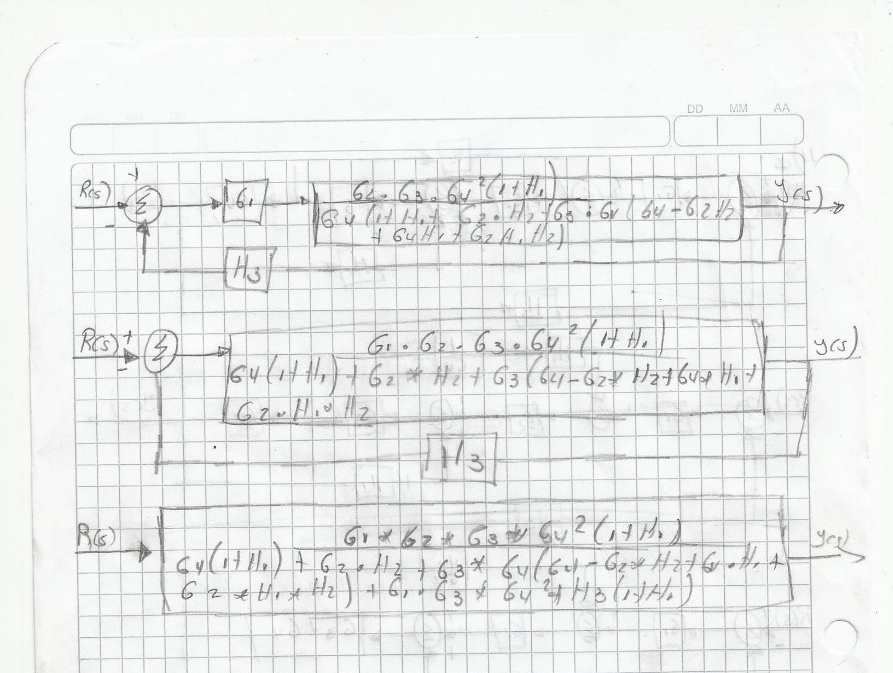 DD MM AA
+
R(s) Σ G1 G2 · G3 · G4²(1+H1) y(s)
-
G4(1+H1+ G2·H2+G3·G4(G4-G2H2
+G4H1+G2H1H2)
H3
R(s) + Σ G1·G2·G3·G4²(1+H1) y(s)
-
G4(1+H1)+G2*H2+G3(G4-G2*H2+G4*H1+
G2·H1*H2
H3
R(s) G1*G2*G3*G4²(1+H1) y(s)
G4(1+H1)+G2·H2+G3*G4(G4-G2*H2+G4·H1+
G2*H1*H2)+G1·G3*G4²+H3(1+H1)